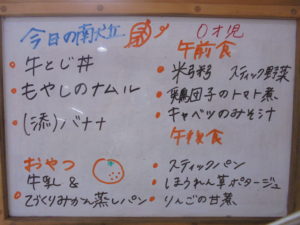 今日の献立
・牛とじ丼
・もやしのナムル
・(添)バナナ
おやつ
牛乳&
てづくりみかん蒸しパン
0才児
午前食
・米粥 スティック野菜
・鶏団子のトマト煮
・キャベツのみそ汁
午後食
・スティックパン
・ほうれん草ポタージュ
・りんごの甘煮